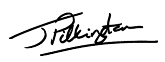 J Pilkington